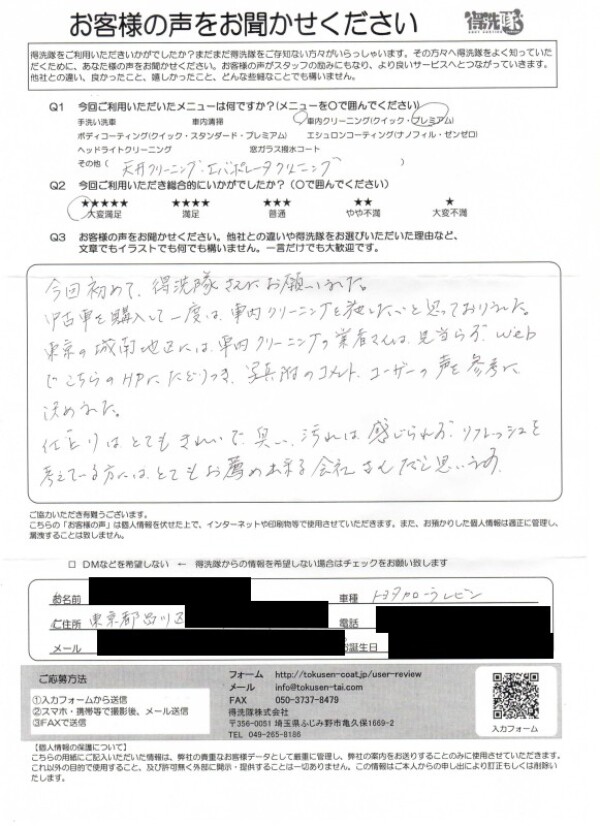 お客様の声をお聞かせください
得洗隊
得洗隊をご利用いただきいかがでしたか?まだまだ得洗隊をご存知ない方々がいらっしゃいます。その方々へ得洗隊をよく知っていた
だくために、あなた様の声をお聞かせください。お客様の声がスタッフの励みにもなり、より良いサービスへとつながっていきます。
他社との違い、良かったこと、嬉しかったこと、どんな些細なことでも構いません。
Q1 今回ご利用いただいたメニューは何ですか?(メニューを〇で囲んでください)
手洗い洗車 車内清掃 車内クリーニング(クイック・プレミアム)
ボディコーティング(クイック・スタンダード・プレミアム) エシュロンコーティング(ナノフィル・ゼンゼロ)
ヘッドライトクリーニング 窓ガラス撥水コート
その他( 天井クリーニング・エバポレータクリーニング )
Q2 今回ご利用いただき総合的にいかがでしたか?(〇で囲んでください)
★★★★★ ★★★★ ★★★ ★★ ★
大変満足 満足 普通 やや不満 大変不満
Q3 お客様の声をお聞かせください。他社との違いや得洗隊をお選びいただいた理由など、
文章でもイラストでも何でも構いません。一言だけでも大歓迎です。
今回初めて、得洗隊さんにお願いしました。
中古車を購入して一度は、車内クリーニングを施したいと思っておりました。
東京の城南地区には、車内クリーニングの業者さんは、見当らず、Web
でこちらのHPにたどりつき、写真附のコメント、ユーザーの声を参考に
決めました。
仕上りは、とてもきれいで、臭い、汚れは、感じられず、リフレッシュを
考えている方には、とてもお薦め出来る会社さんだと思います。
ご協力いただき有難うございます。
こちらの「お客様の声」は個人情報を伏せた上で、インターネットや印刷物等で使用させていただきます。また、お預かりした個人情報は適正に管理し、
漏洩することは致しません。
□ DMなどを希望しない ← 得洗隊からの情報を希望しない場合はチェックをお願い致します
お名前 車種 トヨタカローラレビン
ご住所 東京都品川区 電話
メール お誕生日
ご応募方法
①入力フォームから送信
②スマホ・携帯等で撮影後、メール送信
③FAXで送信
フォーム http://tokusen-coat.jp/user-review
メール info@tokusen-tai.com
FAX 050-3737-8479
得洗隊株式会社
〒356-0051 埼玉県ふじみ野市亀久保1669-2
TEL 049-265-8186
入力フォーム
【個人情報の保護について】
こちらの用紙にご記入いただいた情報は、弊社の貴重なお客様データとして厳重に管理し、弊社の案内をお送りすることのみに使用させていただきます。
これ以外の目的で使用すること、及び許可無く外部に開示・提供することは一切ありません。この情報はご本人からの申し出により訂正もしくは削除い
たします。